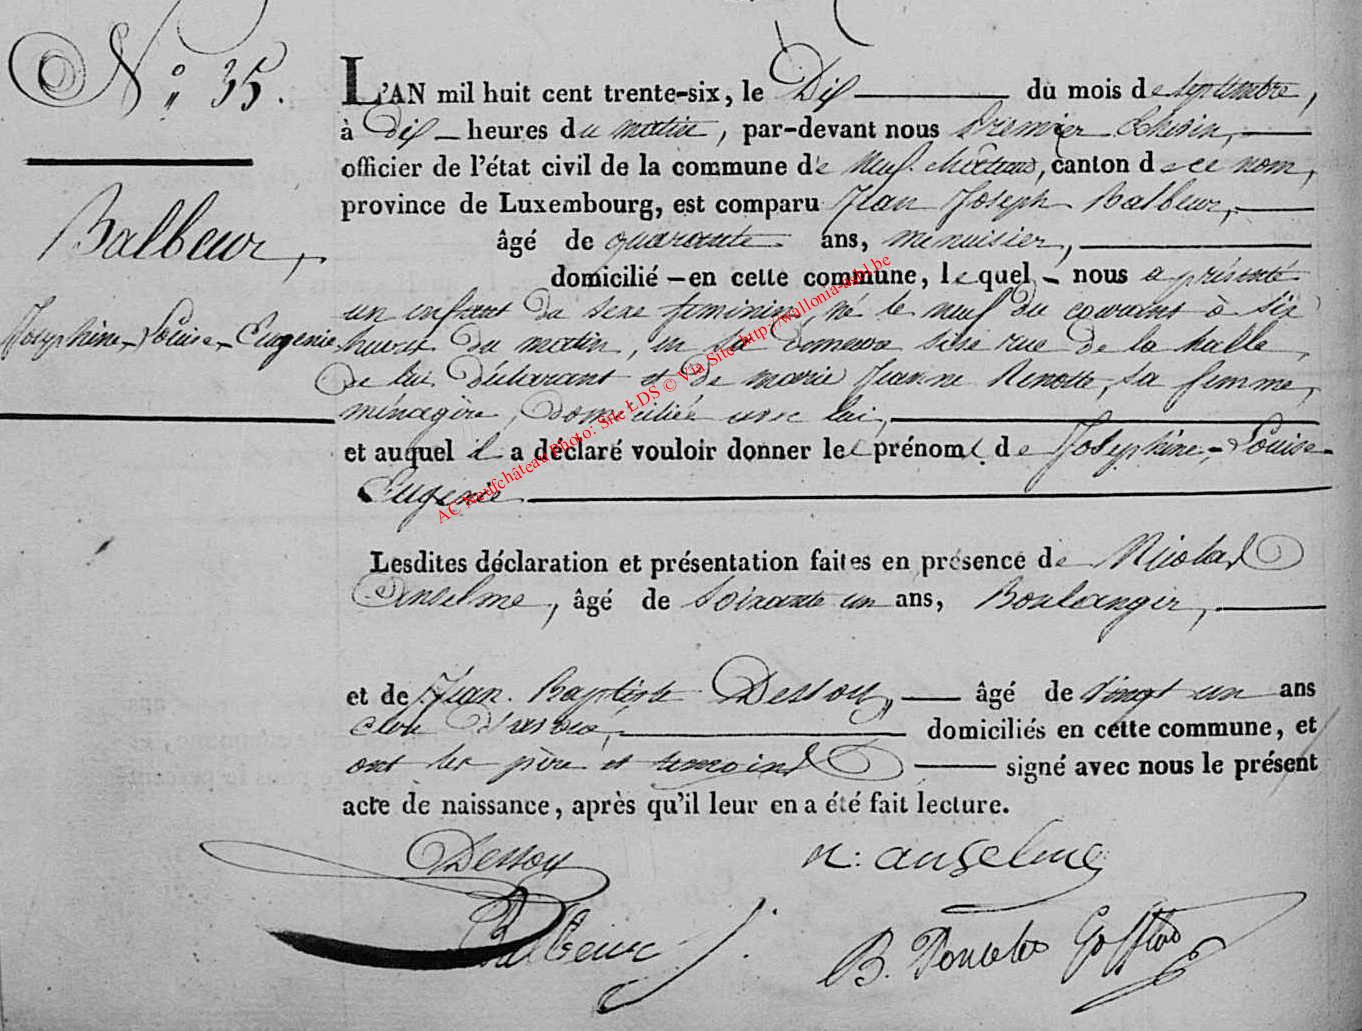 N° 35.
Balbeur,
Josephine-Louise-Eugenie
L'AN mil huit cent trente-six, le Dix du mois de septembre,
à Dix heures du matin, par-devant nous Premier Echevin,
officier de l'état civil de la commune de Neufchâteau, canton de ce nom,
province de Luxembourg, est comparu Jean Joseph Balbeur,
âgé de quarante ans, menuisier,
domicilié en cette commune, lequel nous a présenté
un enfant du sexe feminin, né le neuf du courant à six
heures du matin, en sa demeure sise rue de la halle,
de lui Déclarant et de marie Jeanne Renotte, sa femme,
ménagère, domiciliée avec lui,
et auquel il a déclaré vouloir donner les prénoms de Josephine-Louise-
Eugenie
Lesdites déclaration et présentation faites en présence de Nicolas
Anselme, âgé de soixante un ans, Boulanger,
et de Jean Baptiste Dessoy, âgé de vingt un ans
domiciliés en cette commune, et
ont les père et temoins signé avec nous le présent
acte de naissance, après qu'il leur en a été fait lecture.
Dessoy
N: anselme
Balbeur J.
B. Poncelet
AC Neufchâteau Photo: Site LDS © Via Site http://wallonia-asbl.be